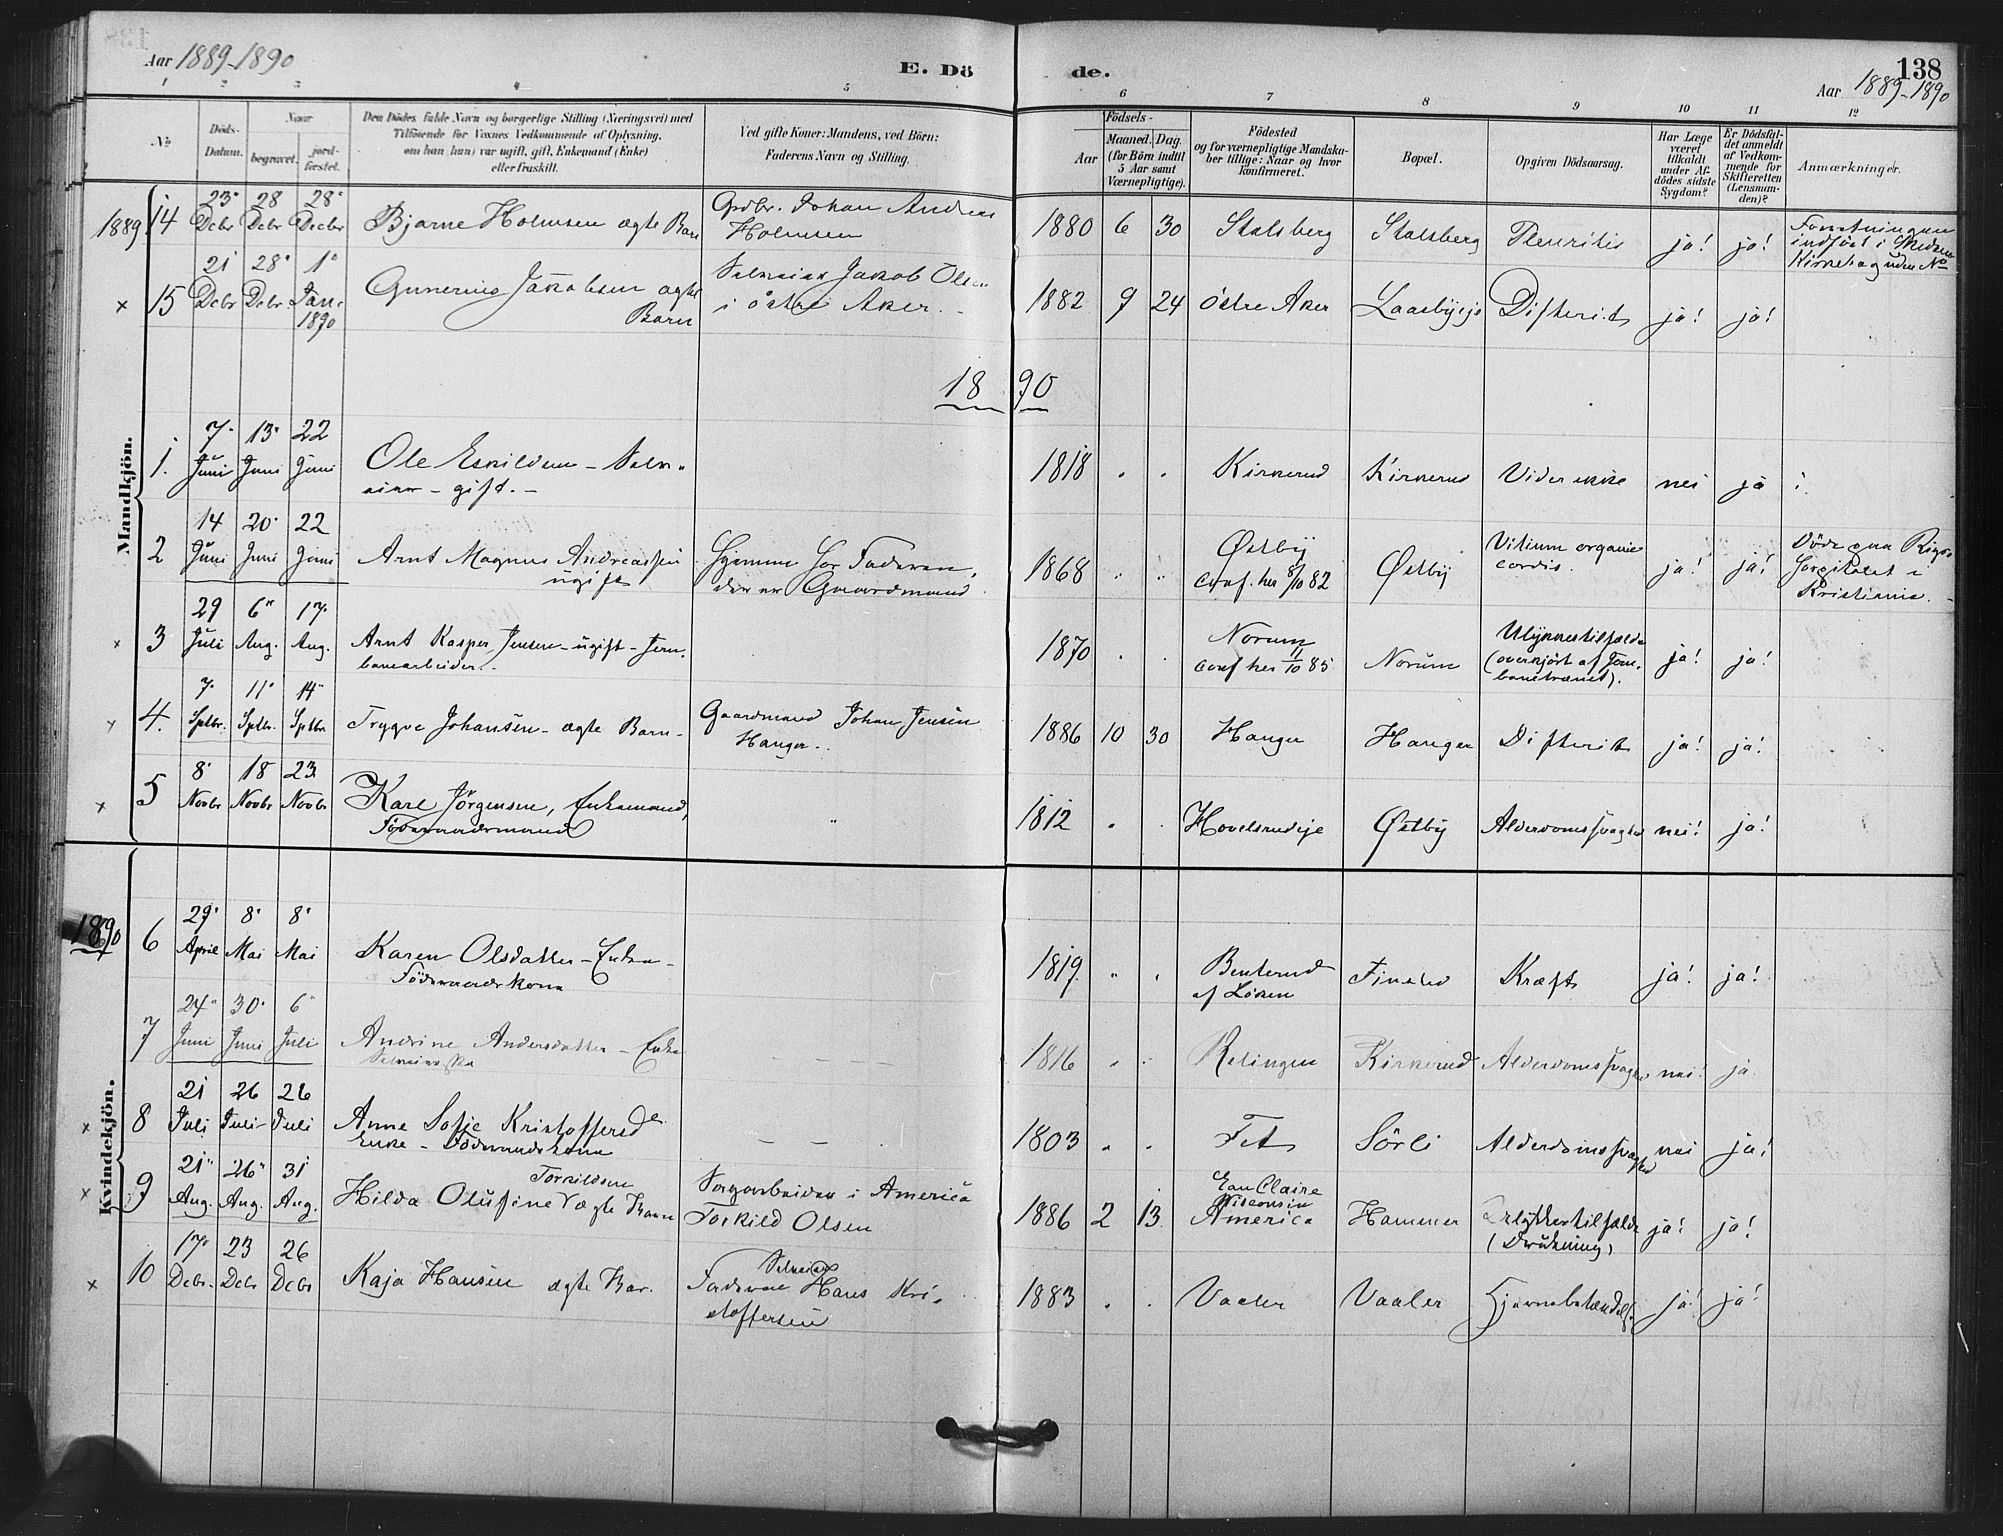 Aar 1889-1890
E. Dö de.
138
Aar 1889-1890
1 2 3 4 5 6 7 8 9 10 11 12
No
Döds-
Datum.
Naar
begravet.
jord-
fæstet.
Den Dödes fulde Navn og borgerlige Stilling (Næringsvei) med
Tilföiende for Voxnes Vedkommende af Oplysning,
om han (hun) var ugift, gift, Enkemand (Enke)
eller fraskilt.
Ved gifte Koner: Mandens, ved Börn:
Faderens Navn og Stilling.
Födsels-
Aar
Maaned. Dag.
(for Börn indtil
5 Aar samt
Værnepligtige).
Födested
og for værnepligtige Mandska-
ber tillige: Naar og hvor
konfirmeret.
Bopæl.
Opgiven Dödsaarsag.
Har Læge
været
tilkaldt
under Af-
dödes sidste
Sygdom?
Er Dödsfal-
det anmeldt
af Vedkom-
mende for
Skifteretten
(Lensman-
den)?
Anmærkninger.
Mandkjön.
1889 14 23 Decbr 28 Decbr 28 Decbr Bjarne Holmsen ægte Barn Grdbr. Johan Andreas
Holmsen 1880 6 30 Stalsberg Stalsberg Pleuritis ja! ja! Forretningen
indført i Skedsmo
Kirkebog uden No
x 15 21 Dcbr 28 Dcbr 1 Jan. 1890 Gunerius Jakobsen ægte
Barn Selveier Jakob Olsen
i Östre Aker. 1882 9 24 Östre Aker Laasbyeje Difterit ja! ja!
1890
1. 7 Juni 13 Juni 22 Juni Ole Eskildsen - Selv-
eier - gift. - 1818 " " Kirkerud Kirkerud Vides ikke nei ja
2 14 Juni 20 Juni 22 Juni Arnt Magnus Andreassen
ugift Hjemme hos Faderen,
der er Gaardmand 1868 " " Østby
conf. her 8/10 82 Østby Vitium organic
cordis. ja! ja! Døde paa Rigs-
hospitalet i
Kristiania.
x 3 29 Juli 6 Aug. 17 Aug. Arnt Kasper Jensen - ugift - Jern-
banearbeider. 1870 Norum
conf her 85 Norum Ulykkestilfælde
(overkjørt af Jern-
banetrænet). ja! ja!
4. 7 Sptbr. 11 Sptbr. 14 Sptbr Trygve Johansen - ægte Barn - Gaardmand Johan Jensen
Hanger. 1886 10 30 Hanger Hanger Difterit ja! ja!
x 5 8 Novbr 18 Novbr 23 Novbr Karl Jørgensen, Enkemand,
Föderaadsmand " 1812 Hovelsrudeje Østby Alderdomssvaghed nei! ja!
Kvindekjön.
1890 6 29 April 8 Mai 8 Mai Karen Olsdatter - Enke -
Föderaadskone 1819 " " Benterud
af Løken Finstad Kræft ja! ja!
7 24 Juni 30 Juni 6 Juli Andrine Andersdatter - Enke
— — 1816 " " Relingen Kirkerud Alderdomssvaghed nei! ja
x 8 21 Juli 26 Juli 26 Juli Anne Sofie Kristoffersd
Enke - Föderaadskone — — 1803 " " Fet Sörli Alderdomssvaghed nei ja!
x 9 21 Aug. 26 Aug. 31 Aug. Hilda Olufine Torkildsen ægte Barn Sagarbeider i America
Torkild Olsen 1886 2 13 Eau Claire
Wisconsin
America Hammer Ulykkestilfælde
(Drukning) ja! ja!
x 10 17 Dcbr. 23 Dcbr 26 Dcbr Kaja Hansen ægte Bar. Faderen Selveier Hans Kri-
stoffersen 1883 Vaaler Vaaler Hjernebetændelse ja! ja!